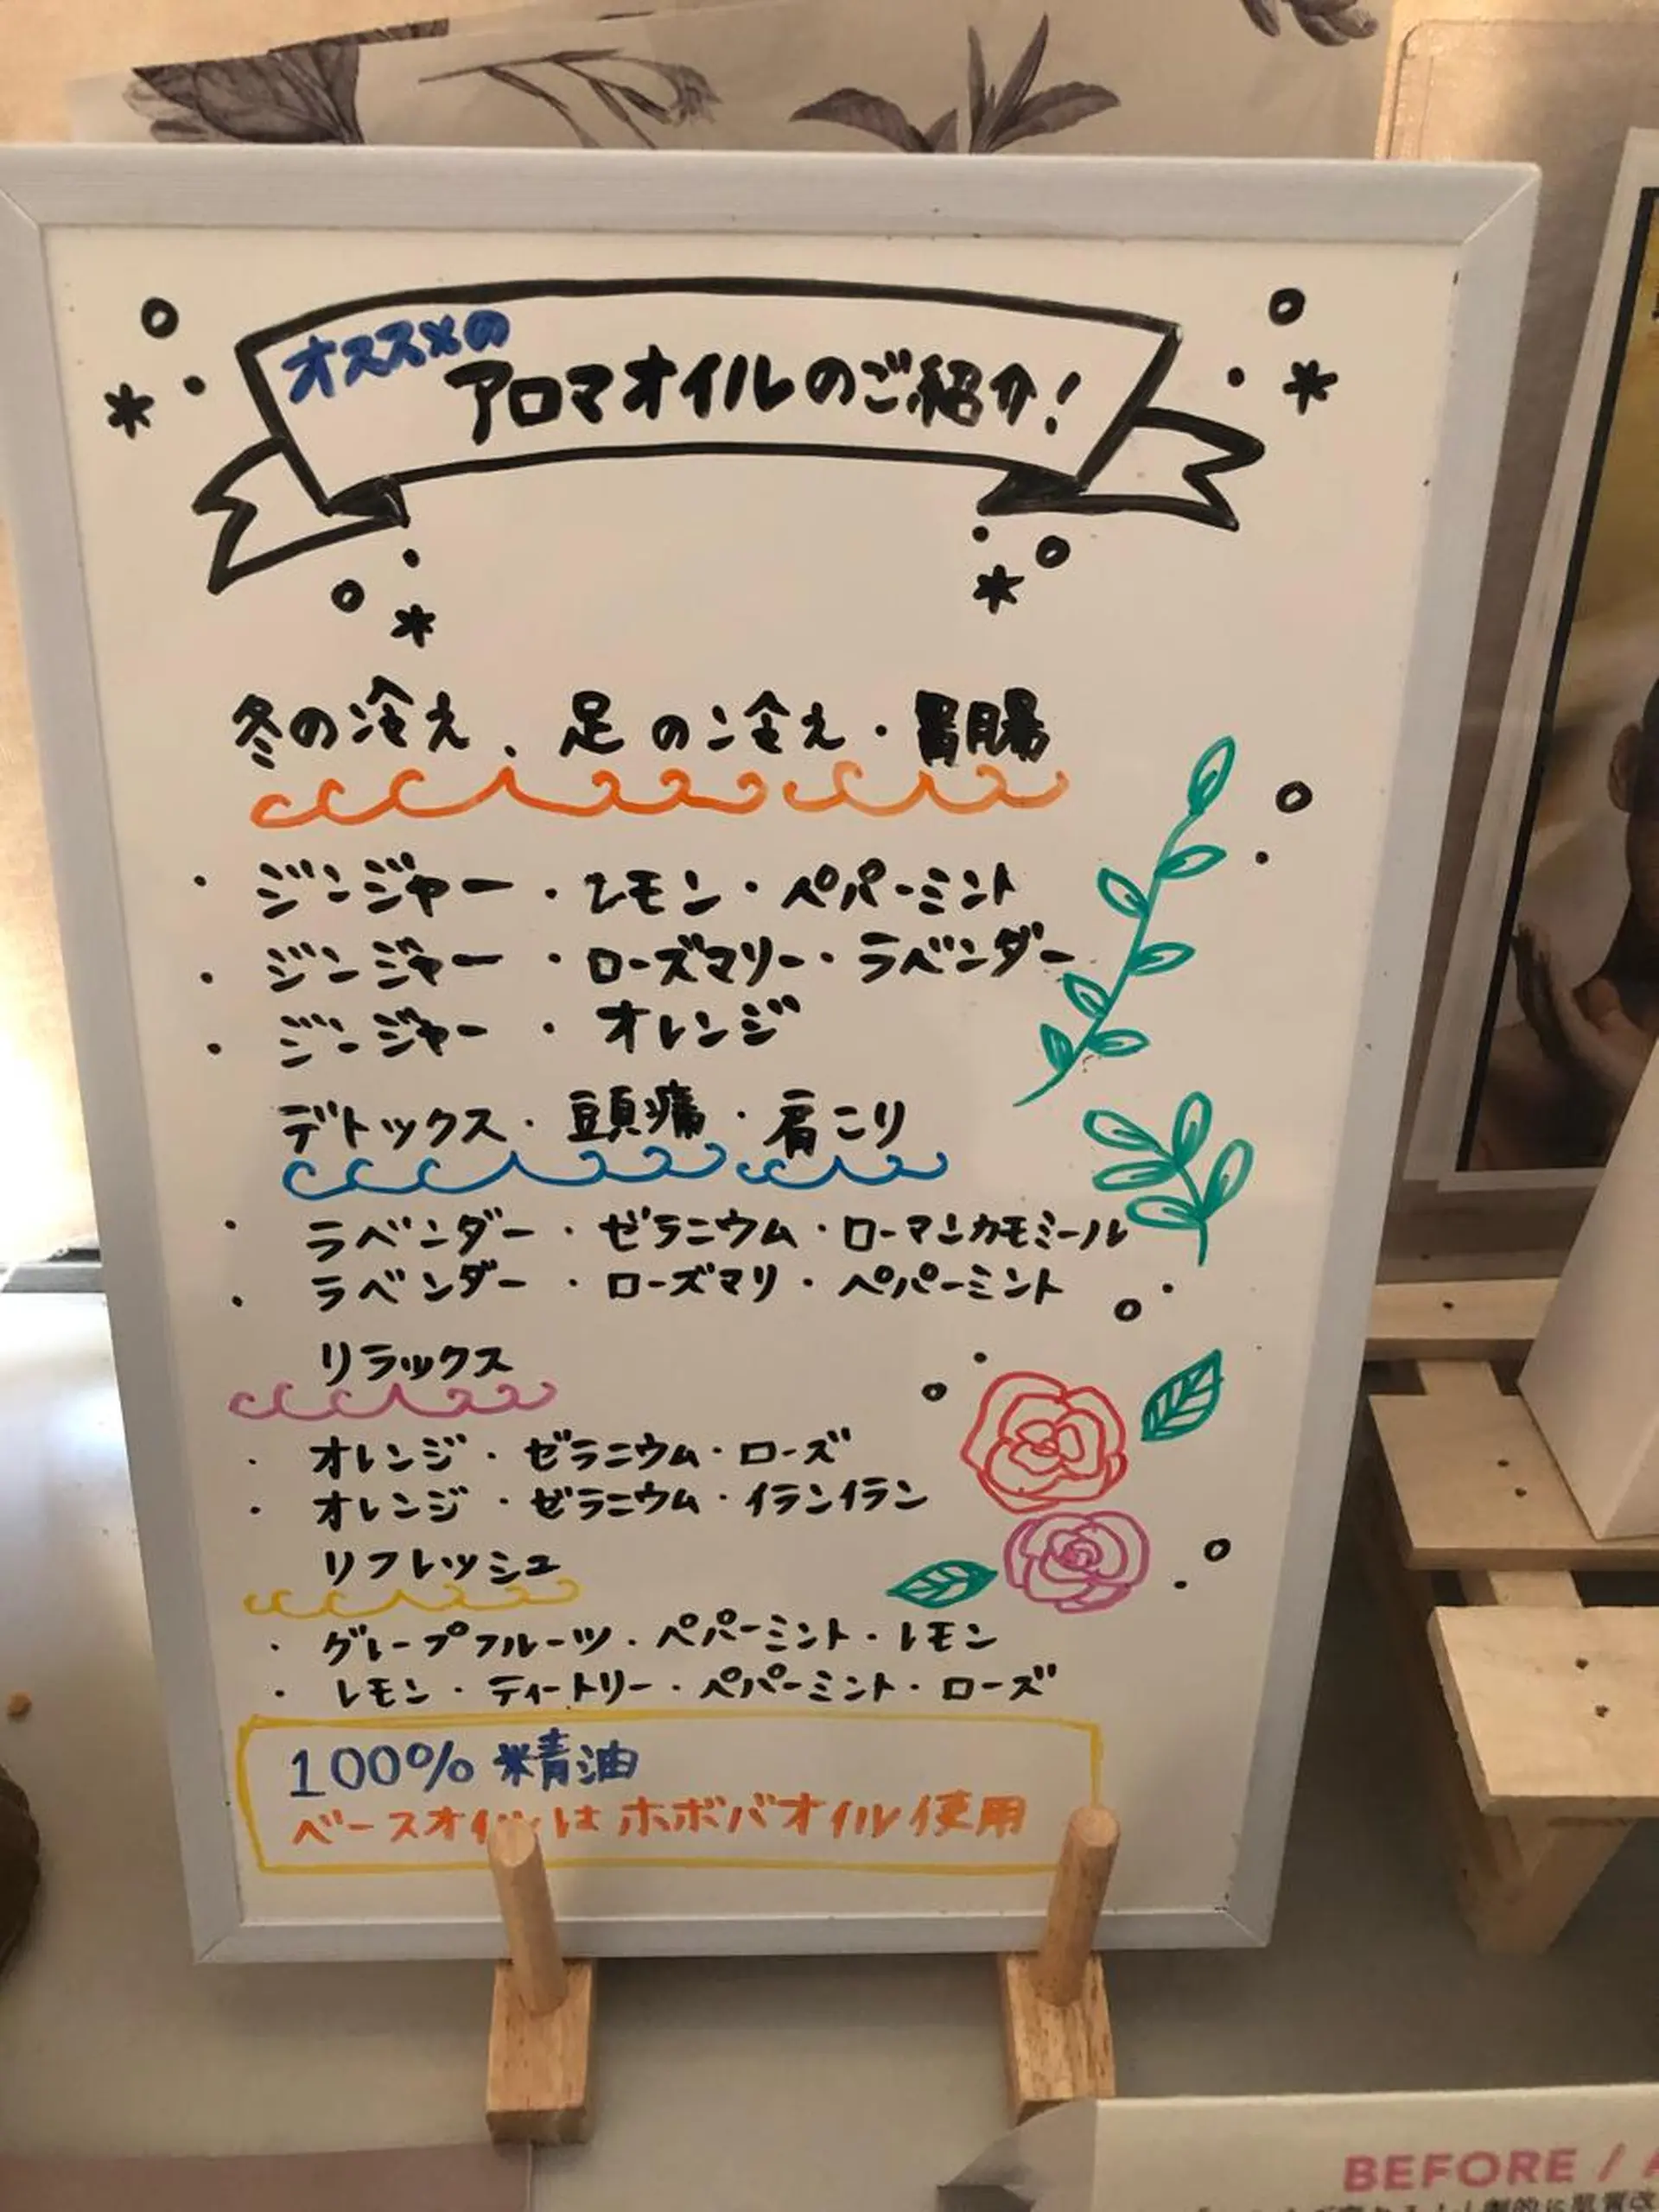 オススメの
アロマオイルのご紹介!
冬の冷え、足の冷え・胃腸
・ジンジャー・レモン・ペパーミント
・ジンジャー・ローズマリー・ラベンダー
・ジンジャー・オレンジ
デトックス・頭痛・肩こり
・ラベンダー・ゼラニウム・ローマンカモミール
・ラベンダー・ローズマリ・ペパーミント
リラックス
・オレンジ・ゼラニウム・ローズ
・オレンジ・ゼラニウム・イランイラン
リフレッシュ
・グレープフルーツ・ペパーミント・レモン
・レモン・ティートリー・ペパーミント・ローズ
100% 精油
ベースオイルはホボバオイル使用
BEFORE /